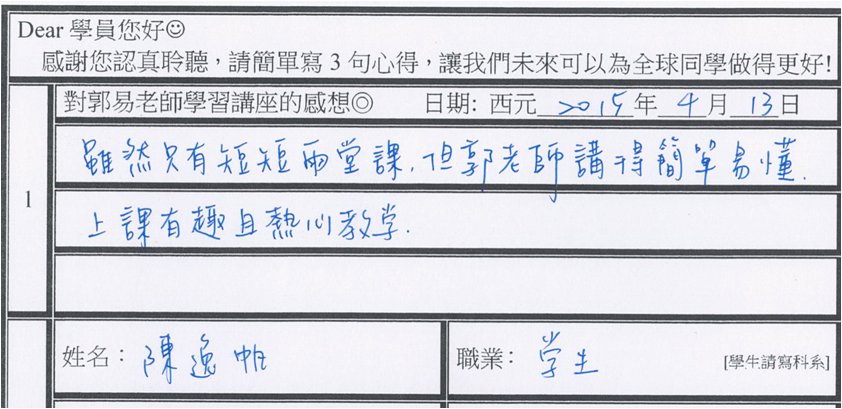 Dear 學員您好☺
感謝您認真聆聽，請簡單寫 3 句心得，讓我們未來可以為全球同學做得更好!
1
對郭易老師學習講座的感想◎ 日期: 西元 2015 年 4 月 13 日
雖然只有短短兩堂課,但郭老師講得簡單易懂.
上課有趣且熱心教学.
姓名：陳逸帆
職業：学生 [學生請寫科系]